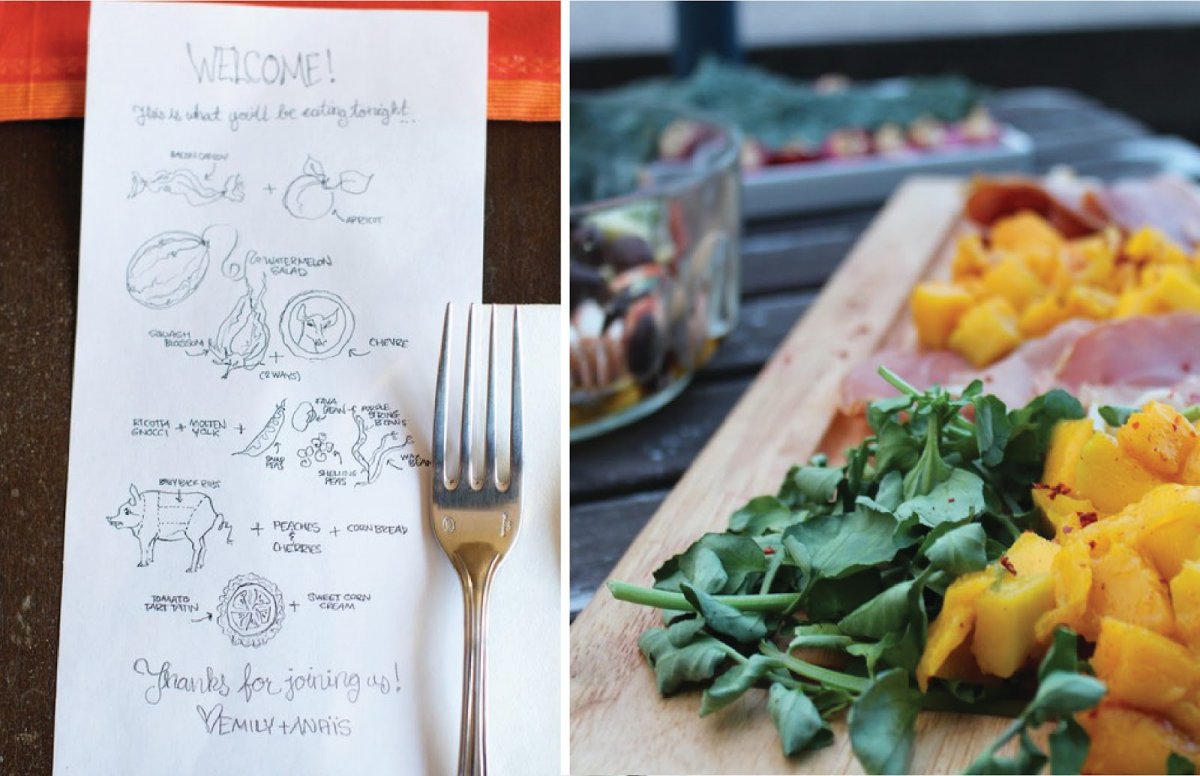 WELCOME!
This is what you'll be eating tonight...
BACON CANDY
+
APRICOT
WATERMELON
SALAD
SQUASH
BLOSSOM
+
CHEVRE
(2 WAYS)
RICOTTA
GNOCCI
+ MOLTEN
YOLK
+
SNAP
PEAS
FAVA
BEAN
PURPLE
STRING
BEANS
SHELLING
PEAS
WAX
BEAN
BABY BACK RIBS
+ PEACHES
&
CHERRIES
+ CORNBREAD
TOMATO
TART TATIN
+ SWEET CORN
CREAM
Thanks for joining us!
EMILY + ANAÏS